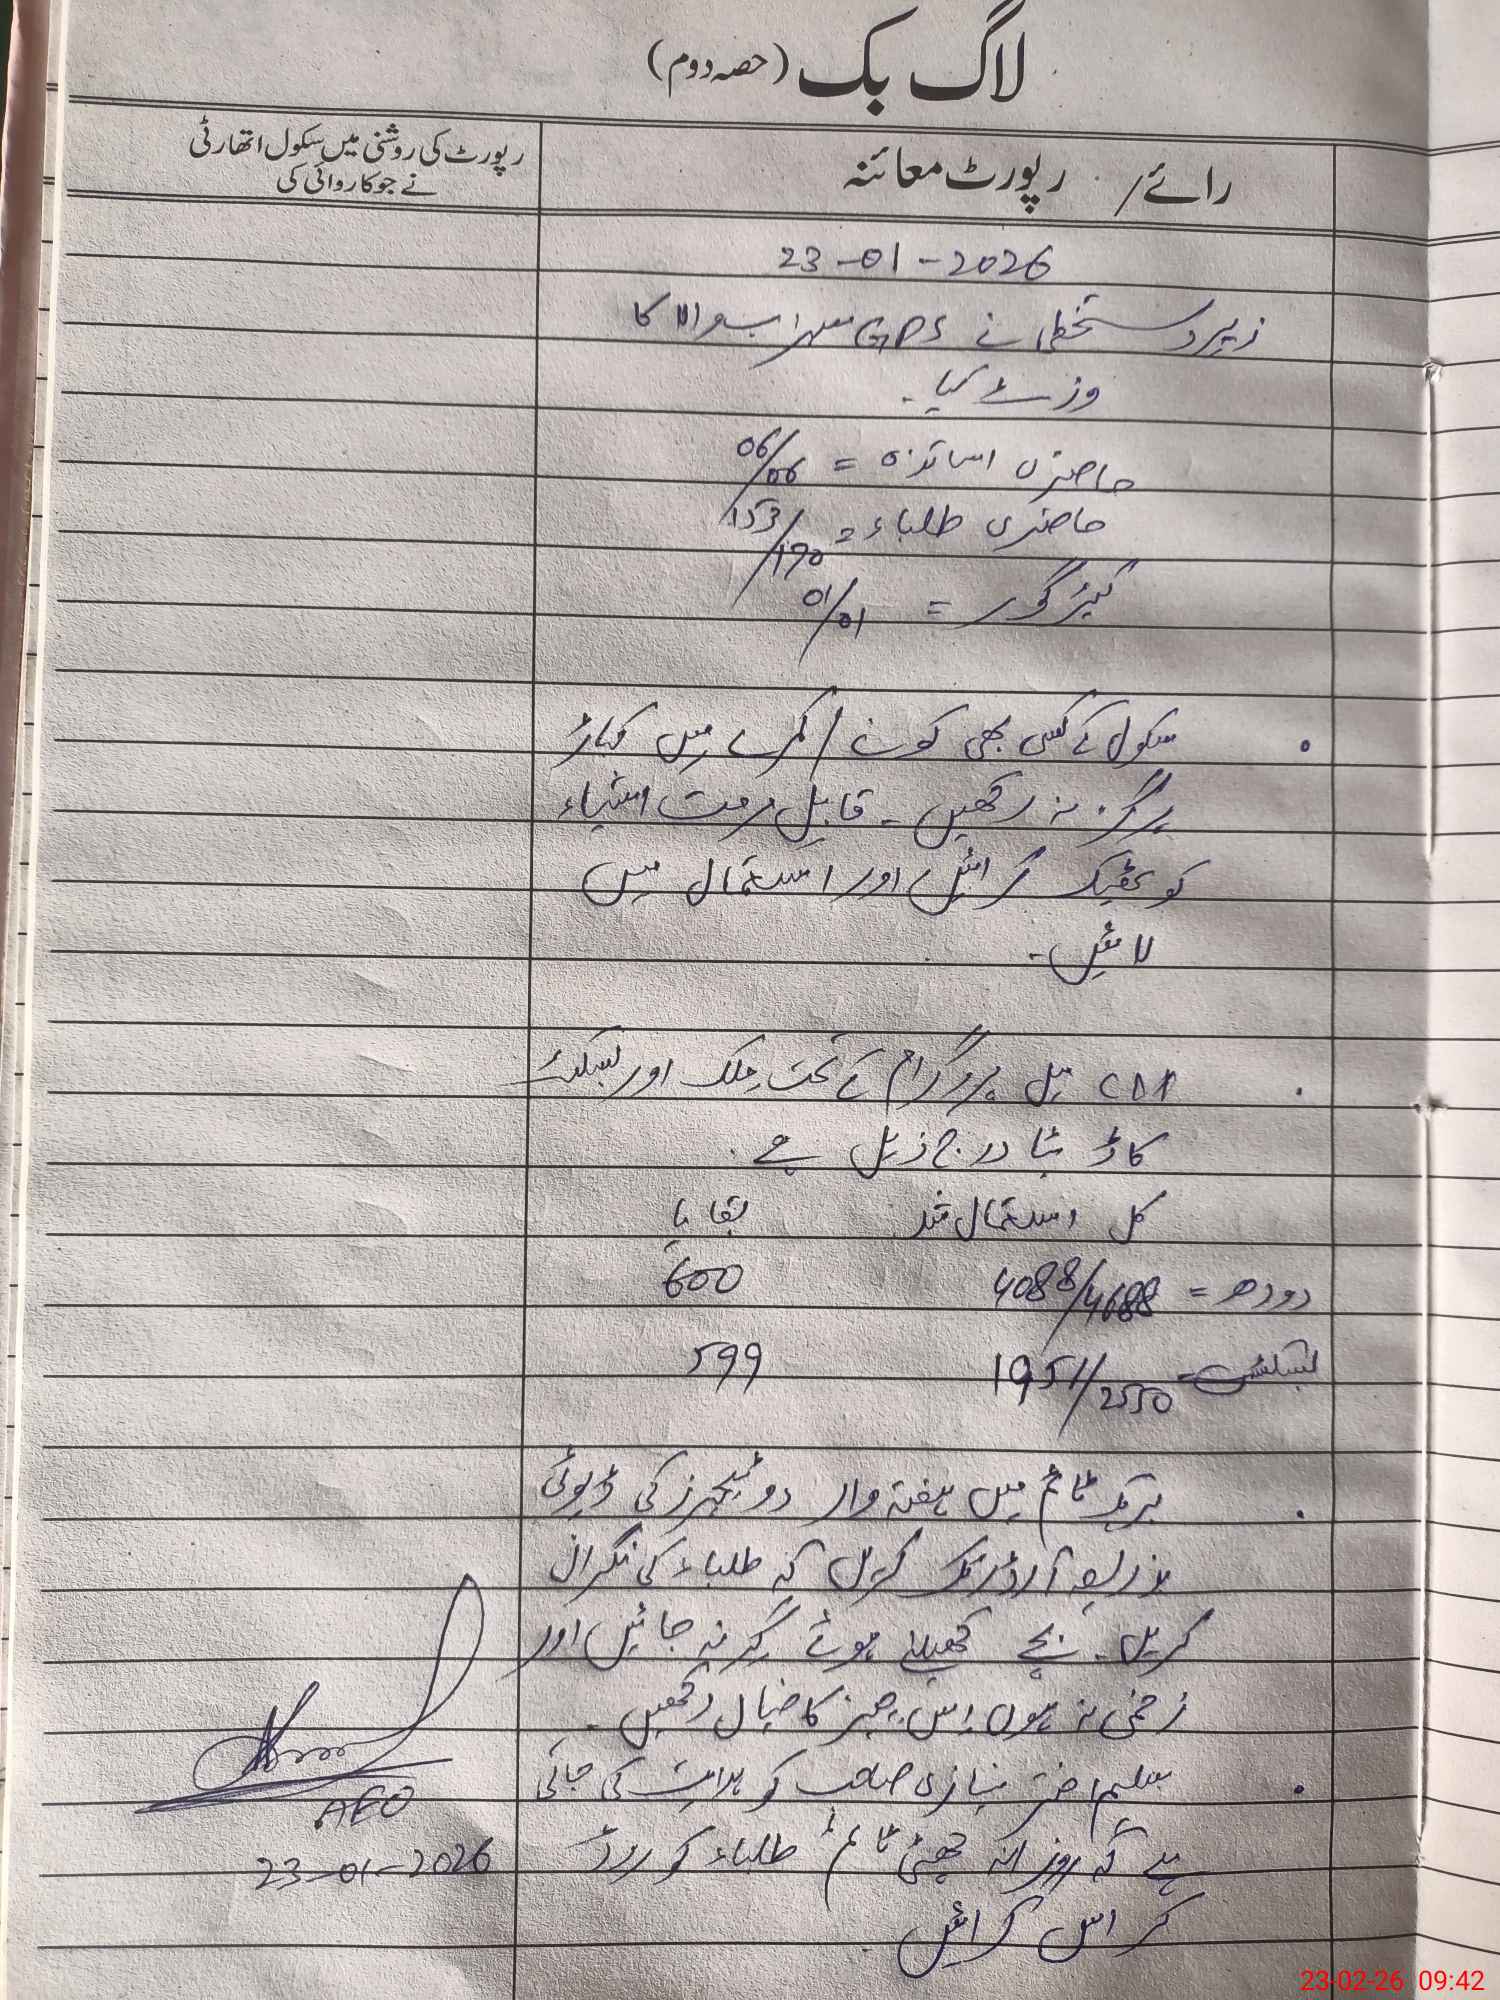 لاگ بک (حصہ دوم)
رائے / رپورٹ معائنہ
رپورٹ کی روشنی میں سکول اتھارٹی
نے جو کاروائی کی
23-01-2026
زیر دستخطی نے GPS سہراب والا کا
وزٹ کیا۔
حاضری اساتذہ = 06/06
حاضری طلباء = 153/190
کیئر گور = 01/01
سکول کے کسی بھی کونے / کمرے میں کباڑ
ہرگز نہ رکھیں۔ قابل مرمت اشیاء
کو ٹھیک کرائیں اور استعمال میں
لائیں۔
میل پروگرام کے تحت ملک اور بسکٹ
کا ڈیٹا درج ذیل ہے۔
کل استعمال شد بقایا
دودھ = 4088/4688 600
بسکٹس = 1951/2550 599
بریک ٹائم میں ہفتہ وار دو ٹیچرز کی ڈیوٹی
بذریعہ آرڈر بک کریں کہ طلباء کی نگرانی
کریں۔ بچے کھیلتے ہوئے گر نہ جائیں اور
زخمی نہ ہوں اس چیز کا خیال رکھیں۔
سلیم اختر نیازی صاحب کو ہدایت کی جاتی
ہے کہ روزانہ چھٹی ٹائم طلباء کو روڈ
کراس کرائیں
AEO
23-01-2026
23-02-26 09:42